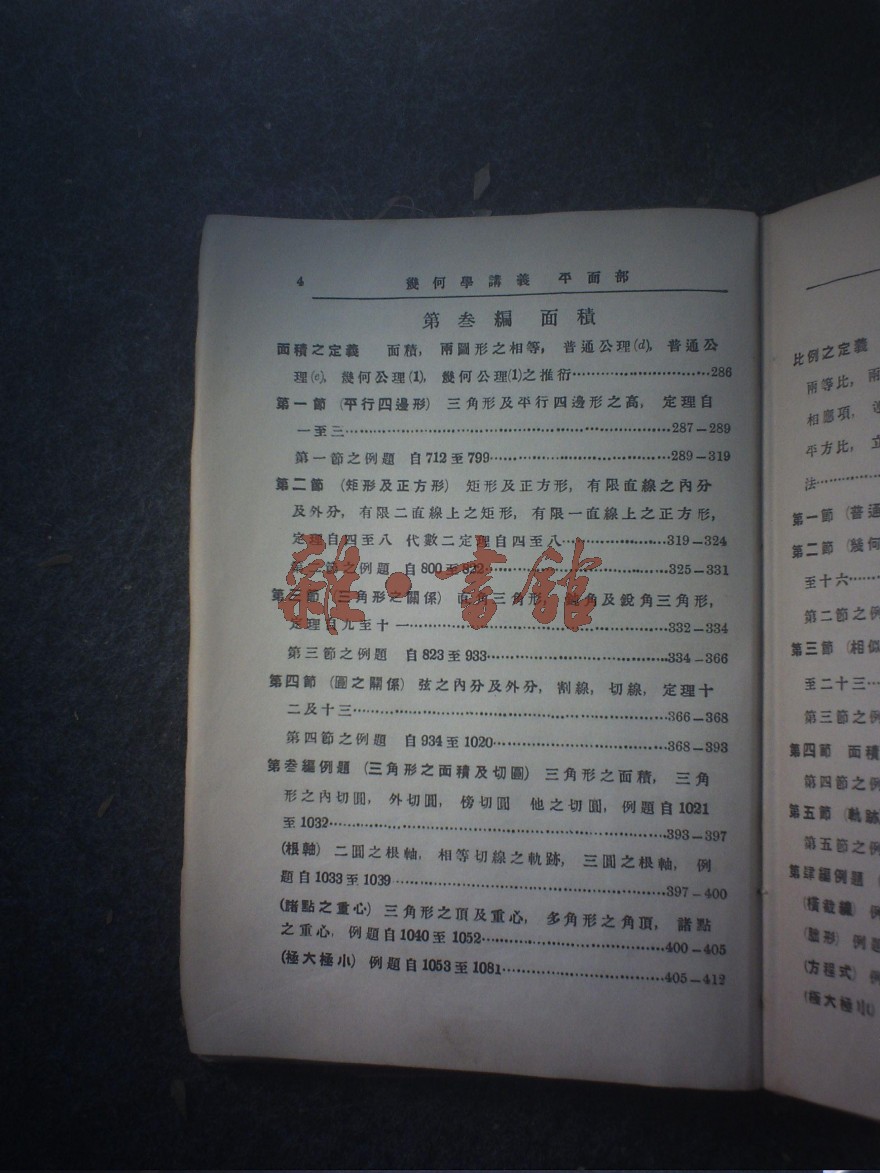 4 幾何學講義 平面部
第叁編 面積
面積之定義 面積, 兩圖形之相等, 普通公理(d), 普通公
理(e), 幾何公理(1), 幾何公理(1)之推衍……286
第一節 (平行四邊形) 三角形及平行四邊形之高, 定理自
一至三……287—289
第一節之例題 自712至799……289—319
第二節 (矩形及正方形) 矩形及正方形, 有限直線之內分
及外分, 有限二直線上之矩形, 有限一直線上之正方形,
定理自四至八 代數二定理自四至八……319—324
第二節之例題 自800至822……325—331
第三節 (三角形之關係) 直角三角形, 鈍角及銳角三角形,
定理自九至十一……332—334
第三節之例題 自823至933……334—366
第四節 (圓之關係) 弦之內分及外分, 割線, 切線, 定理十
二及十三……366—368
第四節之例題 自934至1020……368—393
第叁編例題 (三角形之面積及切圓) 三角形之面積, 三角
形之內切圓, 外切圓, 傍切圓 他之切圓, 例題自1021
至1032……393—397
(根軸) 二圓之根軸, 相等切線之軌跡, 三圓之根軸, 例
題自1033至1039……397—400
(諸點之重心) 三角形之頂及重心, 多角形之角頂, 諸點
之重心, 例題自1040至1052……400—405
(極大極小) 例題自1053至1081……405—412
雜·書館
比例之定義
兩等比, 兩
相應項,
平方比,
法……
第一節 (普通
第二節 (幾何
至十六……
第二節之例
第三節 (相似
至二十三…
第三節之例
第四節 面積
第四節之例
第五節 (軌跡
第五節之例
第肆編例題
(橫截線) 例
例題
(方程式) 例
(極大極小)